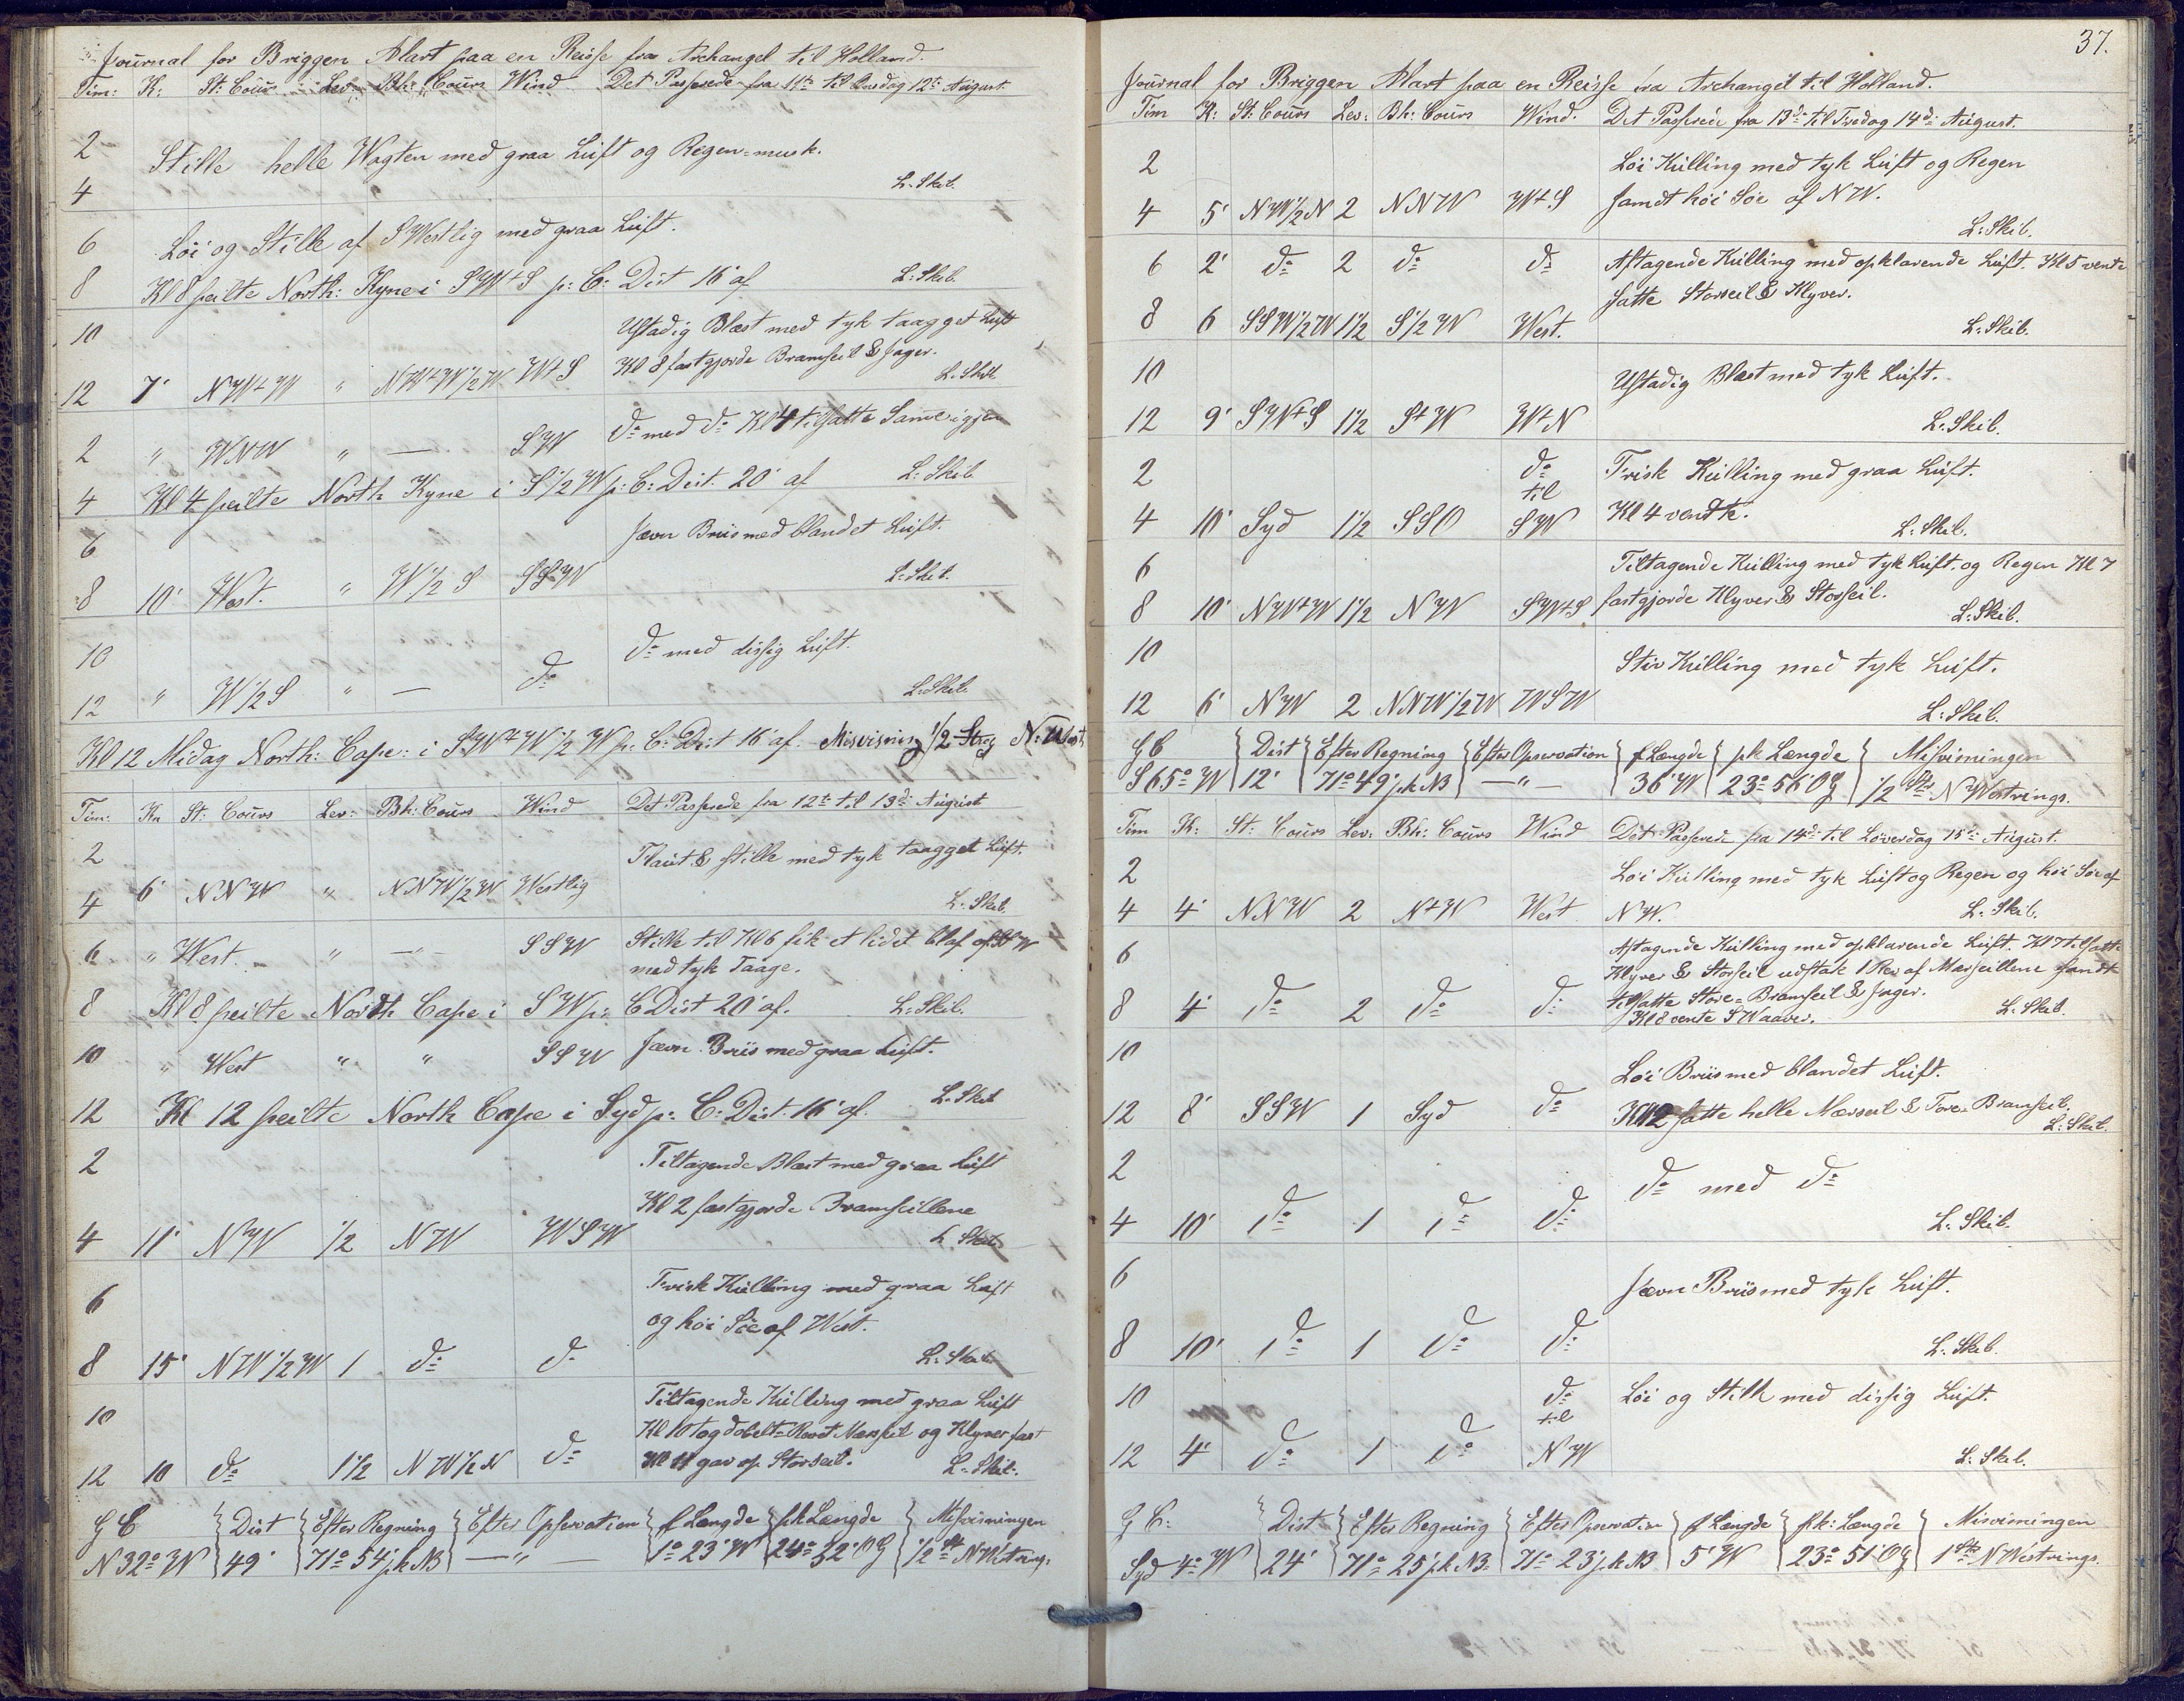 Journal for Briggen Mart paa en Reisse fra Archangel til Holland.
Tim: K: St: Cours Lev: Bh: Cours Wind Det Passerede fra 11te til Onsdag 12te August.
2
Stille helle Wagten med graa Luft og Regen-musk.
4 L. Skib.
6 Löi og Stille af SWestlig med graa Luft.
8 Kl 8 peilte North: Kyne i SW+S p: C: Dist 16' af L: Skib.
10 Ustadig Blæst med tyk taagget Luft
Kl 8 fastgjorde Bramseil & Jager.
12 7' NW+W " NW+W1/2W W+S L. Skib
d:o med d:o Kl 4 tilsatte Same igjen
2 " WNW " — SW
4 Kl 4 peilte North Kyne i S1/2W p: C: Dist. 20' af L: Skib
6 Jævn Briis med blandet Luft.
8 10' West. " W1/2S SSW L: Skib.
10 d:o med dissig Luft.
12 " W1/2S " — d:o L: Skib.
Kl 12 Midag North: Cape: i SW+W1/2W p: C: Dist 16' af. Misvisning 1/2 Streg N: West
Tim: Kn St: Cours Lev: Bh: Cours Wind Det Passerede fra 12te til 13d: August
2 Flaut & stille med tyk taagget Luft.
4 6' NNW " NNW1/2W Westlig L. Skib.
6 " West. " — SSW Stille til Kl 6 fik et lidet blaf af SW
med tyk Taage.
8 Kl 8 peilte North Cape i SW p: C Dist 20' af. L: Skib.
10 " West " " SSW Jævn Briis med graa Luft.
12 Kl 12 peilte North Cape i Syd p: C: Dist. 16' af. L: Skib
2 Tiltagende Blæst med graa Luft
Kl 2 fastgjorde Bramseillene
4 11' NW 1/2 NW WSW L. Skib
6 Frisk Kulling med graa Luft
og höi Söe af West.
8 15' NW1/2W 1 d:o d:o L: Skib
10 Tiltagende Kulling med graa Luft
Kl 10 tog dobelt-Revet Mersseil og Klyver fast
Kl 11 gav op Storseil.
12 10 d:o 1 1/2 NW1/2N d:o L: Skib.
G C Dist Efter Regning Efter Opservation f Længde p k Længde Misvisningen
N 32° W 49' 71° 54' p k NB —"— 1° 23' W 24° 32' OG 1/2 St NWestrings
37.
Journal for Briggen Mart paa en Reisse fra Archangel til Holland.
Tim K: St: Cours Lev: Bh: Cours Wind. Det Passerede fra 13d: til Fredag 14d: August.
2 Löi Kulling med tyk Luft og Regen
4 5' NW1/2N 2 NNW W+S samdt höi Söe af NW.
L: Skib.
6 2' d:o 2 d:o d:o Aftagende Kulling med opklarende Luft. Kl 5 vente
satte Storseil & Klyver.
8 6 SSW1/2W 1 1/2 S1/2W West. L: Skib.
10 Ustadig Blæst med tyk Luft.
12 9' SW+S 1 1/2 S+W W+N L: Skib.
2 d:o Frisk Kulling med graa Luft.
til
4 10' Syd 1 1/2 SSO SW Kl 4 vendte. L: Skib.
6 Tiltagende Kulling med tyk Luft og Regen Kl 7
8 10' NW+W 1 1/2 NW SW+S fastgjorde Klyver & Storseil. L: Skib.
10 Stiv Kulling med tyk Luft.
12 6' NW 2 NNW1/2W WSW L: Skib.
G C Dist Efter Regning Efter Opservation f Længde p k Længde Misvisningen
S 65° W 12' 71° 49' p k NB —"— 36' W 23° 56' OG 1/2 Str N Westrings.
Tim K: St: Cours Lev: Bh: Cours Wind Det Passerede fra 14d: til Löverdag 15de August.
2 Löi Kulling med tyk Luft og Regen og höi Söe af
4 4' NNW 2 N+W West NW. L: Skib.
6 Aftagende Kulling med opklarende Luft. Kl 7 tilsatte
Klyver & Storseil udstak 1 Rev af Mærseillene samdt
8 4' d:o 2 d:o d:o tilsatte Store-Bramseil & Jager.
Kl 8 vente SWaaver. L: Skib.
10 Löi Briis med blandet Luft.
12 8' SSW 1 Syd d:o Kl 12 satte helle Mærseil & Fore-Bramseil.
L: Skib.
2 d:o med d:o
4 10' d:o 1 d:o d:o L: Skib.
6 Jævn Briis med tyk Luft.
8 10' d:o 1 d:o d:o L: Skib.
10 d:o Löi og Stille med dissig Luft.
til
12 4' d:o 1 d:o NW L: Skib.
G C: Dist Efter Regning Efter Opservation f Længde p k: Længde Misvisningen
Syd 4° W 24' 71° 25' p k NB: 71° 23' p k NB 5' W 23° 51' OG 1 Str NWestrings.